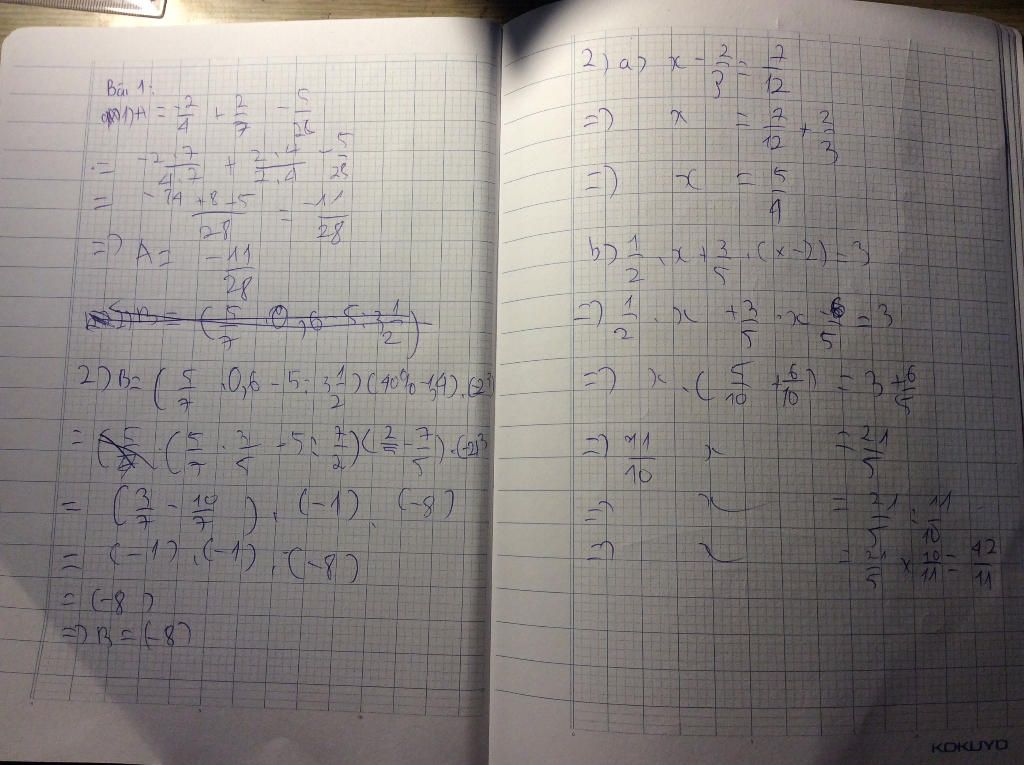 Bài 1:
1) A = -2/4 + 2/7 - 5/28
= -2.7/4.7 + 2.4/7.4 - 5/28
= -14+8-5/28 = -11/28
=> A = -11/28
2) B = (5/7 . 0,6 - 5 : 3 1/2) (40% - 1,4) . (-2)³
= (5/7 . 3/5 - 5 : 7/2) (2/5 - 7/5) . (-2)³
= (3/7 - 10/7) . (-1) . (-8)
= (-1) . (-1) . (-8)
= (-8)
=> B = (-8)
2) a) x - 2/3 = 7/12
=> x = 7/12 + 2/3
=> x = 5/4
b) 1/2 . x + 3/5 . (x - 2) = 3
=> 1/2 . x + 3/5 . x - 6/5 = 3
=> x . (5/10 + 6/10) = 3 + 6/5
=> 11/10 x = 21/5
=> x = 21/5 : 11/10
=> x = 21/5 x 10/11 = 42/11
KOKUYO